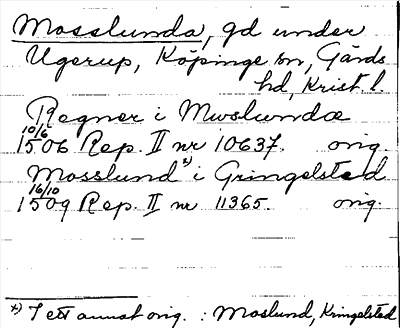 Mosslunda, gd under
Ugerup, Köpinge sn, Gärds
hd, Krist. l.
Regner i Mwslundæ
10/6
1506 Rep. II nr 10637. orig.
Mosslund *) i Gringelsted
16/10
1509 Rep. II nr 11365. orig.
*) I ett annat orig. : Moslund, Kringelsted